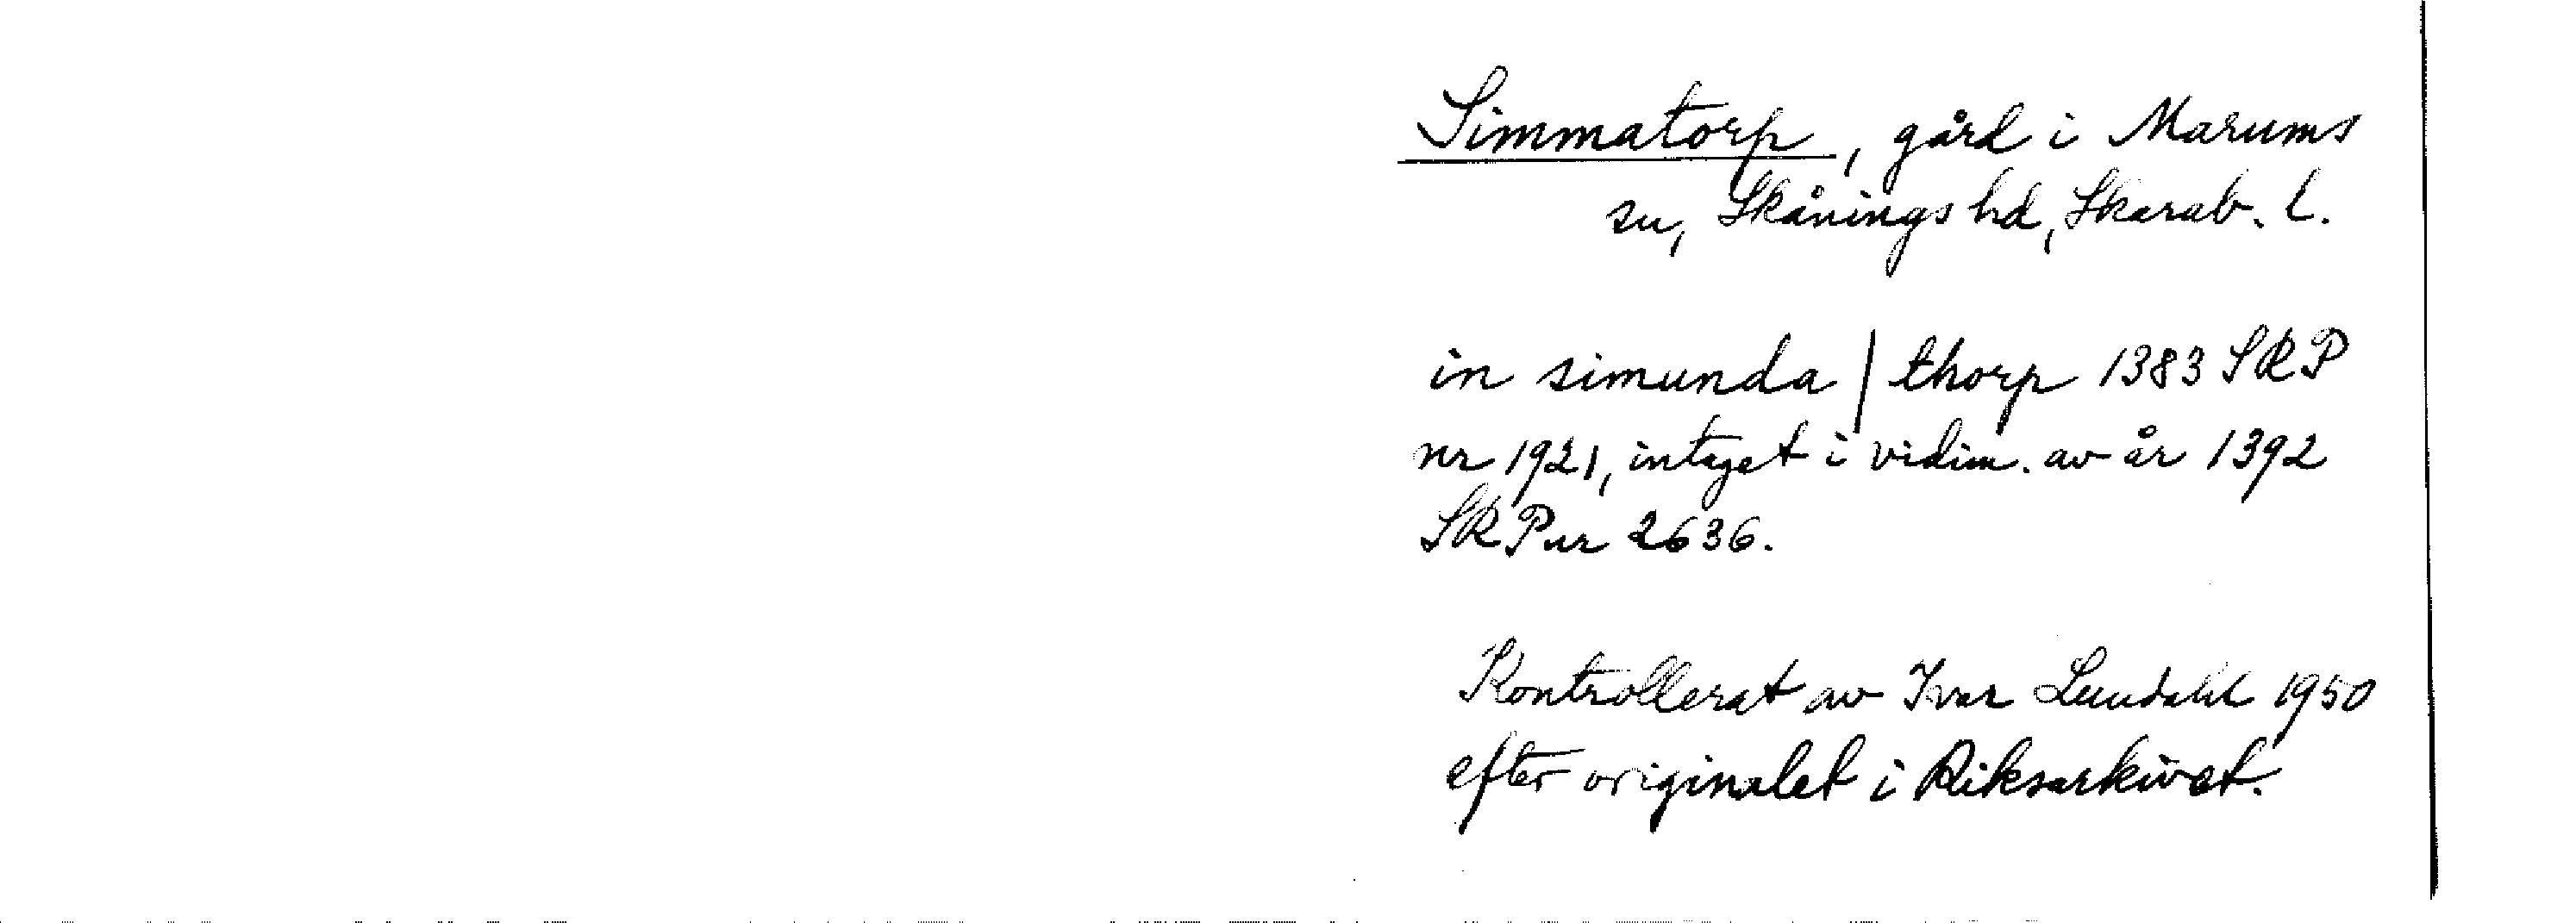 Simmatorp, gård i Marums
sn, Skånings hd, Skarab. l.
in simunda | thorp 1383 SRP
nr 1921, intaget i vidim. av år 1392
SRP nr 2636.
Kontrollerat av Ivar Lundahl 1950
efter originalet i Riksarkivet.